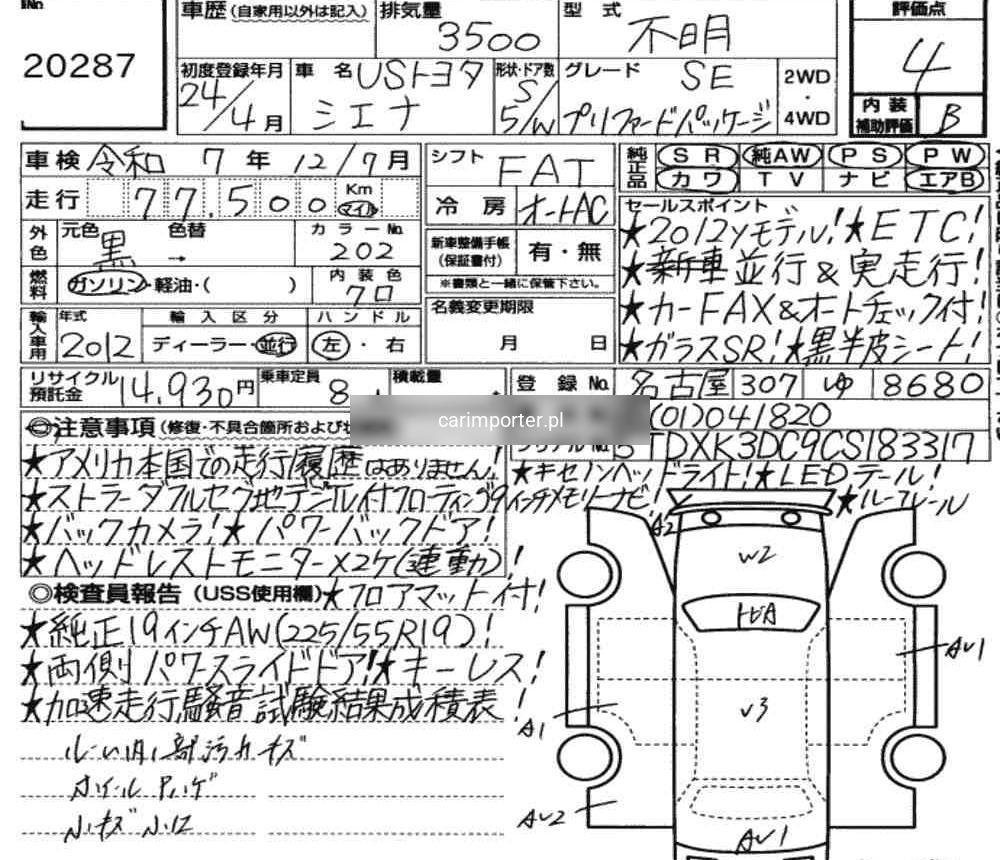 No.
20287
車歴(自家用以外は記入)
排気量
3500
型式
不明
評価点
4
初度登録年月
24/4月
車名
USトヨタ
シエナ
形状・ドア数
S/
5/W
グレード
SE
プリファードパッケージ
2WD
・
4WD
内装
補助評価
B
車検 令和 7年 12/7月
シフト FAT
純正品
SR 純AW PS PW
カワ TV ナビ エアB
走行 77,500 Km マイル
冷房 オートAC
セールスポイント
外色
元色 黒 → 色替
カラーNo.
202
新車整備手帳
(保証書付)
有・無
※書類と一緒に保管下さい。
★2012yモデル!★ETC!
★新車並行&実走行!
★カーFAX&オートチェック付!
★ガラスSR!★黒半皮シート!
燃料
ガソリン・軽油・( )
内装色
クロ
名義変更期限
月 日
輸入車用
年式
2012
輸入区分
ディーラー・並行
ハンドル
左・右
リサイクル
預託金
14,930円
乗車定員
8
積載量
登録No.
名古屋 307 ゆ 8680
(01)041820
5TDXK3DC9CS183317
carimporter.pl
◎注意事項(修復・不具合箇所および
★アメリカ本国での走行履歴はありません!
★ストラーダフルセグ地デジTV付フローティング9インチメモリーナビ!
★バックカメラ!★パワーバックドア!
★ヘッドレストモニター×2ケ(連動)!
★キセノンヘッドライト!★LEDテール!
★ルーフレール
◎検査員報告(USS使用欄)
★フロアマット付!
★純正19インチAW(225/55R19)!
★両側パワースライドドア!★キーレス!
★加速走行騒音試験結果成績表!
内部汚れキズ
ホイール
小キズ 小凹
A2
W2
トビA
AU1
U3
A1
AU2
AU1